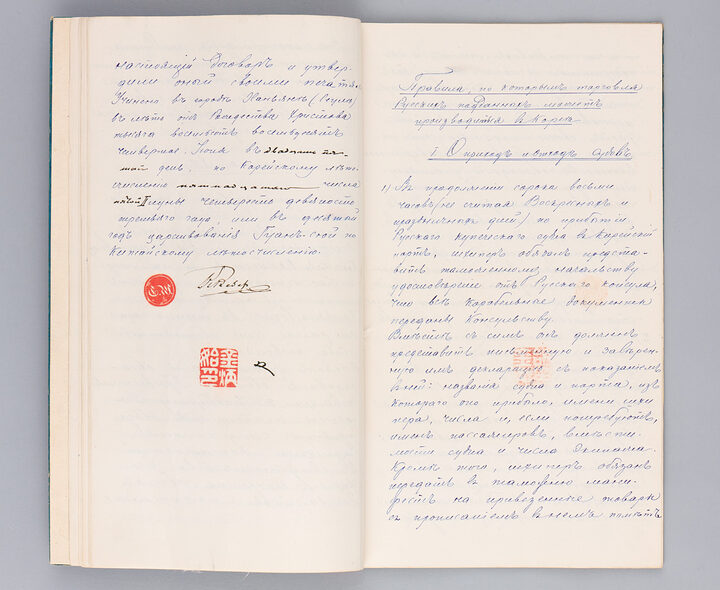 настоящій Договоръ и утвер-
дили оный своими печатя
Учинено въ городѣ Ханьянѣ (Сеулѣ)
въ лѣто отъ Рождества Христова
тысяча восемьсотъ восемьдесятъ
четвертое Іюня въ двадцать пя-
тый день, по Корейскому лѣто-
счисленію пятнадцатаго числа
луны четыреста девяносто
третьяго года, или въ десятый
годъ царствованія Гуанъ-сюй по
Китайскому лѣтосчисленію.
К Вебер
Правила, по которымъ торговля
Русскихъ подданныхъ можетъ
производится въ Кореѣ
I. О приходѣ и отходѣ судовъ
1) Въ продолженіи сорока восьми
часовъ (не считая Воскресныхъ и
праздничныхъ дней) по прибытіи
Русскаго купеческаго судна въ Корейскій
портъ, шкиперъ обязанъ предста-
вить таможенному начальству
удостовѣреніе отъ Русскаго консула,
что всѣ корабельные документы
переданы Консульству.
Вмѣстѣ съ симъ онъ долженъ
представить письменную и завѣрен-
ную имъ декларацію съ показаніемъ
въ ней: названія судна и порта, изъ
котораго оно прибыло, имени шки
пера, числа и, если потребуютъ,
именъ пассажировъ, вмѣсти-
мости судна и числа Экипажа.
Кромѣ того, шкиперъ обязанъ
передать въ таможню мани-
фестъ на привезенные товары
съ прописаніемъ въ немъ помѣтъ